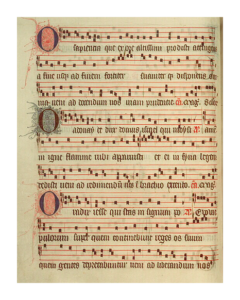 O sapientia que ex ore altissimi prodisti attingens
a fine usq ad finem fortiter suaviter q disponens
veni ad docendum nos viam prudentie
O adonay et dux domus israel qui moysi
in igne flamme rubi apparuisti et ei in syna legem
dedisti veni ad redimendum nos in brachio extento
O radix iesse qui stas in signum
populorum super quem continebunt reges os suum
quem gentes deprecabuntur veni ad liberandum nos